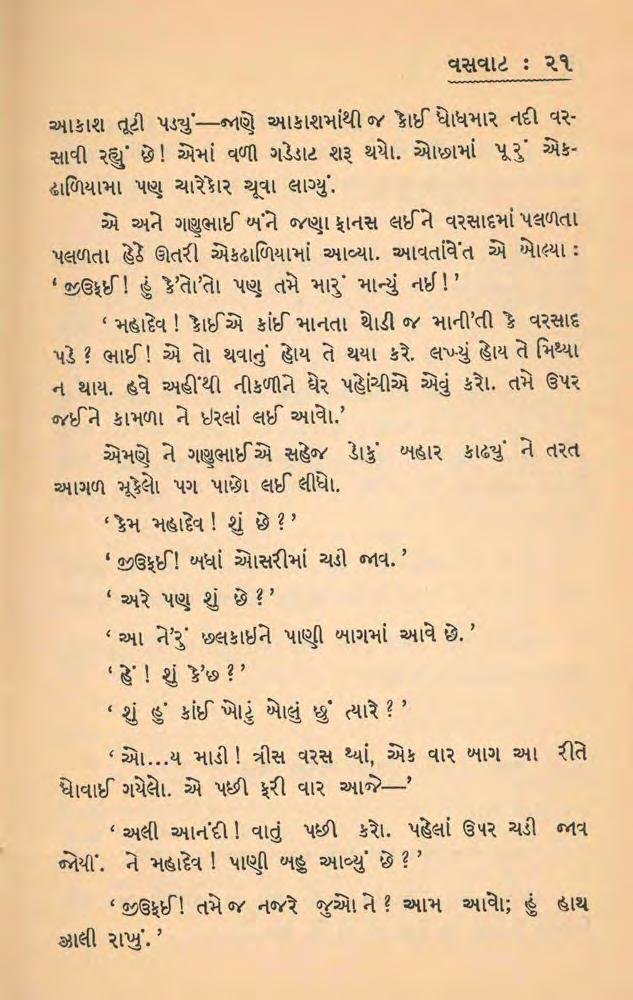 વસવાટ : ૨૧
આકાશ તૂટી પડ્યું—જાણે આકાશમાંથી જ કોઈ ધોધમાર નદી વર-
સાવી રહ્યું છે! એમાં વળી ગડેડાટ શરૂ થયો. ઓછામાં પૂરું એક-
ઢાળિયામા પણ ચારેકોર ચૂવા લાગ્યું.
એ અને ગણુભાઈ બંને જણા ફાનસ લઈને વરસાદમાં પલળતા
પલળતા હેઠે ઊતરી એકઢાળિયામાં આવ્યા. આવતાંવેંત એ બોલ્યા :
‘ જીઉફઈ! હું કે’તો’તો પણ તમે મારું માન્યું નઈ!’
‘ મહાદેવ! કોઈએ કાંઈ માનતા થોડી જ માની’તી કે વરસાદ
પડે ? ભાઈ! એ તો થવાનું હોય તે થયા કરે. લખ્યું હોય તે મિથ્યા
ન થાય. હવે અહીંથી નીકળીને ઘેર પહોંચીએ એવું કરો. તમે ઉપર
જઈને કામળા ને ઇરલાં લઈ આવો.’
એમણે ને ગણુભાઈએ સહેજ ડોકું બહાર કાઢ્યું ને તરત
આગળ મૂકેલો પગ પાછો લઈ લીધો.
‘ કેમ મહાદેવ! શું છે ?’
‘ જીઉફઈ! બધાં ઓસરીમાં ચડી જાવ. ’
‘ અરે પણ શું છે ?’
‘ આ ને’રું છલકાઇને પાણી બાગમાં આવે છે. ’
‘ હેં ! શું કે’છ ?’
‘ શું હું કાંઈ ખોટું બોલું છું ત્યારે ? ’
‘ ઓ...ય માડી! ત્રીસ વરસ થ્યાં, એક વાર બાગ આ રીતે
ધોવાઈ ગયેલો. એ પછી ફરી વાર આજે—’
‘ અલી આનંદી! વાતું પછી કરો. પહેલાં ઉપર ચડી જાવ
જોયીં. ને મહાદેવ ! પાણી બહુ આવ્યું છે ? ’
‘ જીઉફઈ! તમે જ નજરે જુઓ ને ? આમ આવો; હું હાથ
ઝાલી રાખું. ’